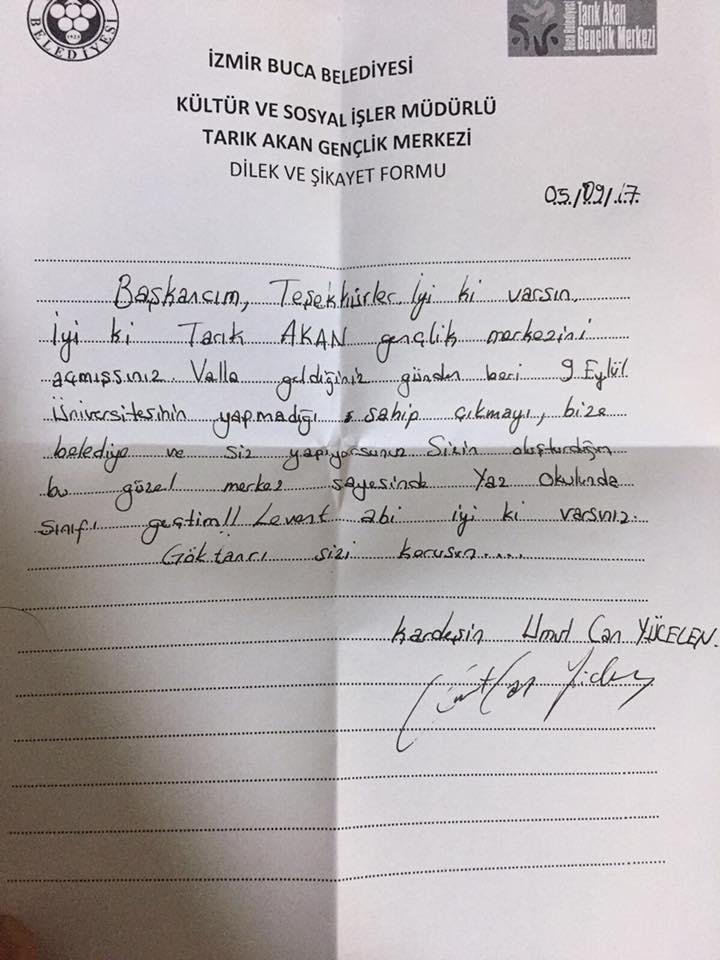 BELEDİYESİ
1923
Buca Belediyesi
Tarık Akan
Gençlik Merkezi
İZMİR BUCA BELEDİYESİ
KÜLTÜR VE SOSYAL İŞLER MÜDÜRLÜ
TARIK AKAN GENÇLİK MERKEZİ
DİLEK VE ŞİKAYET FORMU
05/09/17
Başkancım, Teşekkürler İyi ki varsın.
İyi ki Tarık AKAN gençlik merkezini
açmışsınız. Valla geldiğiniz günden beri 9 Eylül
Üniversitesinin yapmadığı sahip çıkmayı, bize
belediye ve siz yapıyorsunuz Sizin oluşturduğun
bu güzel merkez sayesinde Yaz Okulunda
sınıfı geçtim!! Levent abi iyi ki varsınız.
Göktanrı sizi korusun....
Kardeşin Umut Can YÜCELEN.